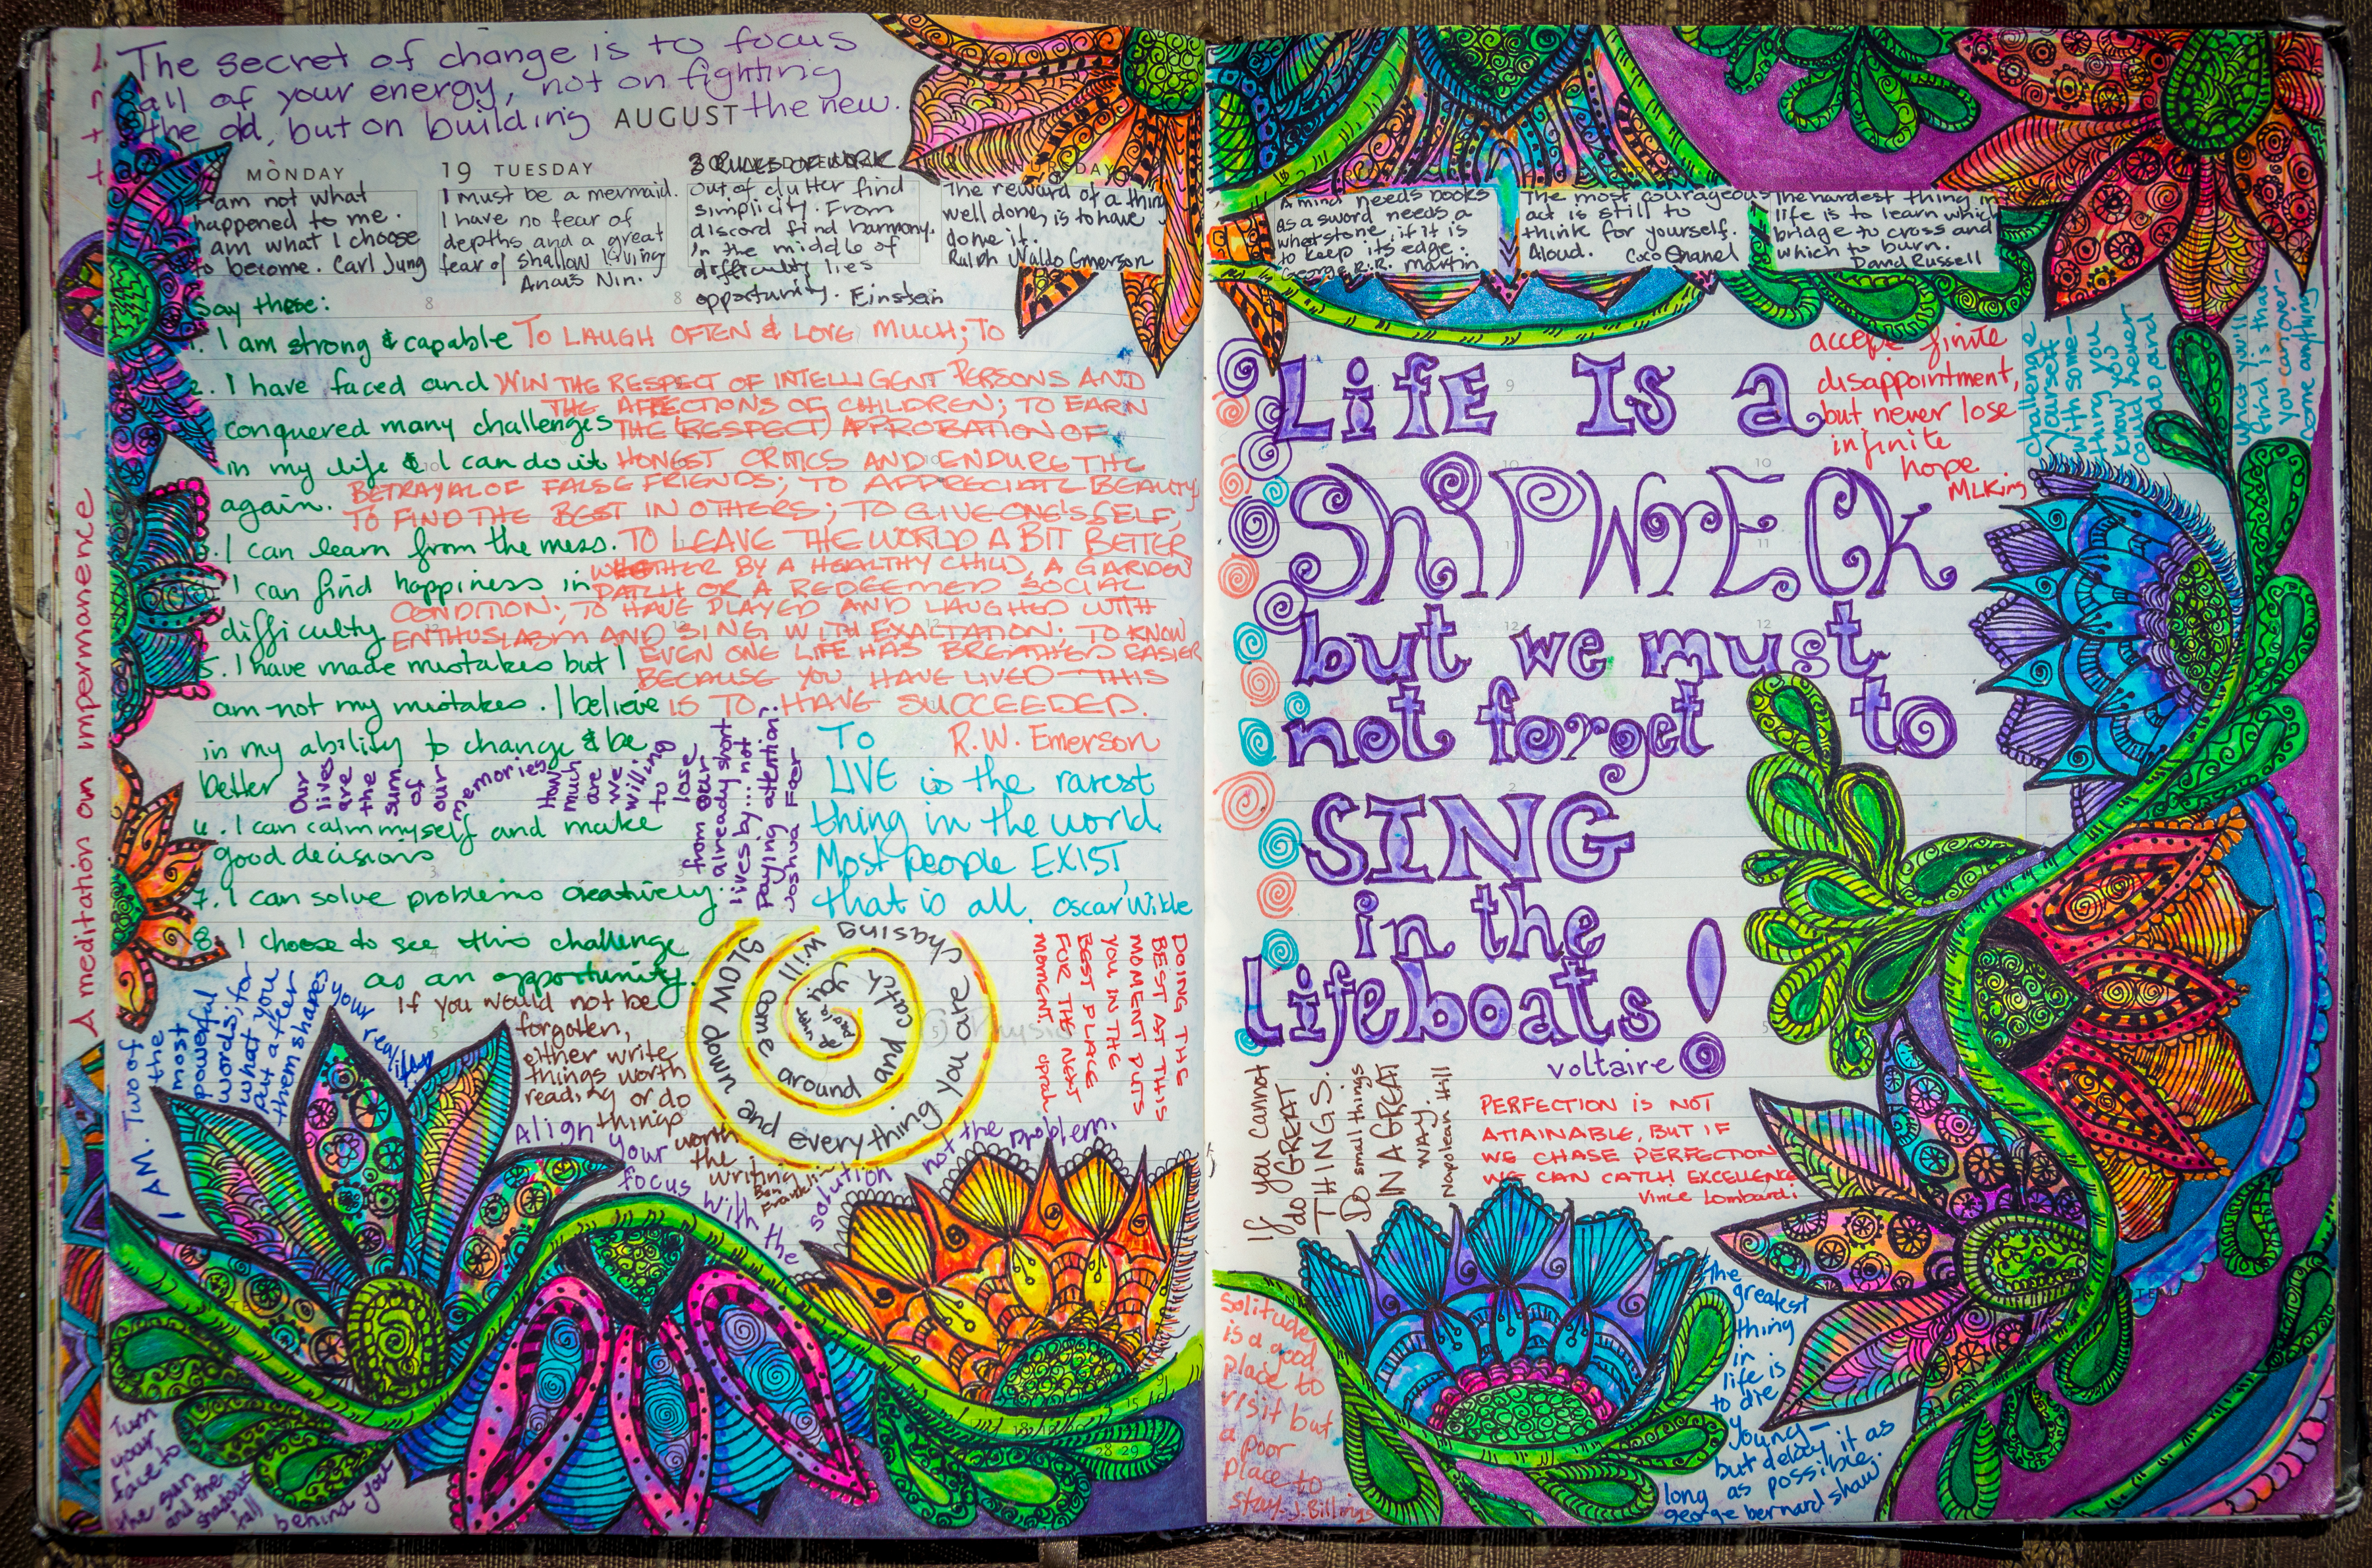 The secret of change is to focus
all of your energy, not on fighting
the old, but on building the new.
AUGUST
MONDAY
I am not what
happened to me.
I am what I choose
to become. Carl Jung
19 TUESDAY
I must be a mermaid.
I have no fear of
depths and a great
fear of shallow living
Anaïs Nin.
3 RULES OF WORK
Out of clutter find
simplicity. From
discord find harmony.
In the middle of
difficulty lies
opportunity. Einstein
The reward of a thing
well done, is to have
done it.
Ralph Waldo Emerson
Say these:
1. I am strong & capable
2. I have faced and
conquered many challenges
in my life & I can do it
again.
3. I can learn from the mess.
I can find happiness in
difficulty
5. I have made mistakes but I
am not my mistakes. I believe
in my ability to change & be
better
6. I can calm myself and make
good decisions
7. I can solve problems creatively.
8. I choose to see this challenge
as an opportunity.
TO LAUGH OFTEN & LOVE MUCH; TO
WIN THE RESPECT OF INTELLIGENT PERSONS AND
THE AFFECTIONS OF CHILDREN; TO EARN
THE (RESPECT) APPROBATION OF
HONEST CRITICS AND ENDURE THE
BETRAYAL OF FALSE FRIENDS; TO APPRECIATE BEAUTY;
TO FIND THE BEST IN OTHERS; TO GIVE ONE'S SELF;
TO LEAVE THE WORLD A BIT BETTER
WHETHER BY A HEALTHY CHILD, A GARDEN
PATCH OR A REDEEMED SOCIAL
CONDITION; TO HAVE PLAYED AND LAUGHED WITH
ENTHUSIASM AND SING WITH EXALTATION; TO KNOW
EVEN ONE LIFE HAS BREATHED EASIER
BECAUSE YOU HAVE LIVED — THIS
IS TO HAVE SUCCEEDED.
R.W. Emerson
Our
lives
are
the
sum
of
our
memories
How
much
are
we
willing
to
lose
from our
already short
lives by... not
Paying attention?
Joshua Foer
To
LIVE is the rarest
thing in the world.
Most people EXIST,
that is all. Oscar Wilde
A meditation on impermanence
SLOW down and everything you are chasing will come around and catch you
DOING THE
BEST AT THIS
MOMENT PUTS
YOU IN THE
BEST PLACE
FOR THE NEXT
MOMENT. oprah
I AM. Two of
the
most
powerful
words; for
what you
put after
them shapes
your reality
If you would not be
forgotten,
either write
things worth
reading or do
things
worth
the
writing
Ben
Franklin
Align your
focus with the
solution
not the problem.
Turn
your
face to
the sun
and the
shadows
fall
behind you
28 29
A mind needs books
as a sword needs a
whetstone, if it is
to keep its edge.
George R.R. Martin
The most courageous
act is still to
think for yourself.
Aloud. Coco Chanel
The hardest thing in
life is to learn which
bridge to cross and
which to burn.
David Russell
LIFE Is a
ShIPWrECk
but we must
not forget to
SING
in the
lifeboats!
voltaire
accept finite
disappointment,
but never lose
infinite
hope
MLKing
challenge
yourself
with some-
thing you
know you
could never
do and
what you'll
find is that
you can over-
come anything
If you cannot
do GREAT
THINGS.
Do small things
IN A GREAT
WAY.
Napolean Hill
PERFECTION IS NOT
ATTAINABLE, BUT IF
WE CHASE PERFECTION
WE CAN CATCH EXCELLENCE
Vince Lombardi
Solitude
is a good
place to
visit but
a poor
place to
stay. J. Billings
the
greatest
thing
in
life is
to die
young—
but delay it as
long as possible.
george bernard shaw